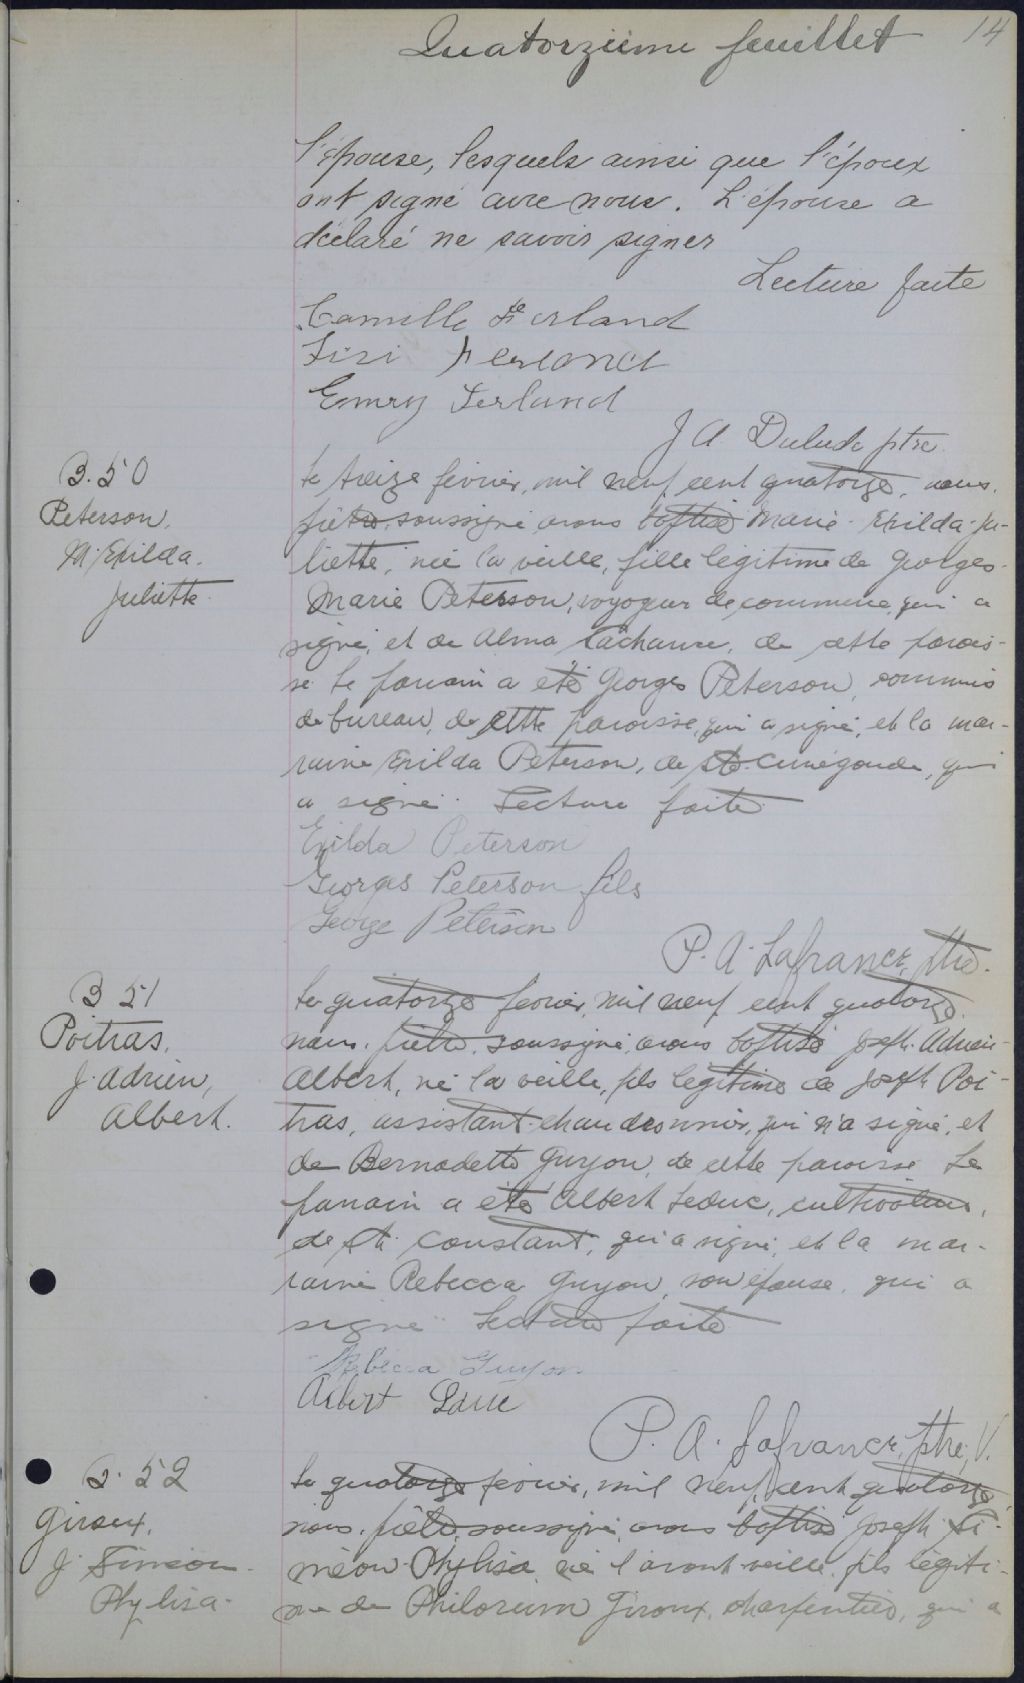 14
Quatorzième feuillet
l'épouse, lesquels ainsi que l'époux
ont signé avec nous. L'épouse a
déclaré ne savoir signer
Lecture faite
Camille Ferland
Ferland
Emery Ferland
J A Dulude ptre.
B. 50
Peterson,
M. Exilda.
Juliette
Le treize février, mil neuf cent quatorze, nous,
prêtre soussigné avons baptisé Marie-Exilda-Ju-
liette, née la veille, fille légitime de Georges-
Marie Peterson, voyageur de commerce, qui a
signé, et de Alma Lachance, de cette parois-
se Le parrain a été Georges Peterson, commis
de bureau, de cette paroisse, qui a signé, et la mar-
raine Exilda Peterson, de Ste-Cunégonde, qui
a signé. Lecture faite
Exilda Peterson
Georges Peterson fils
George Peterson
P. A. Lafrance, ptre.
B 51
Poitras,
J. Adrien,
Albert.
Le quatorze février, mil neuf cent quatorze,
nous, prêtre, soussigné, avons baptisé Joseph-Adrien-
Albert, né la veille, fils légitime de Joseph Poi-
tras, assistant-chaudronnier, qui n'a signé, et
de Bernadette Guyon, de cette paroisse Le
parrain a été Albert Leduc, cultivateur,
de St-Constant, qui a signé, et la mar-
raine Rebecca Guyon, son épouse, qui a
signé. Lecture faite
Rebecca Guyon
Albert
P. A. Lafrance, ptre, V.
B. 52
Giroux,
J. Siméon-
Phylisa.
Le quatorze février, mil neuf cent quatorze,
nous, prêtre, soussigné, avons baptisé Joseph-Si-
méon-Phylisa, né l'avant-veille, fils légiti-
me de Philorum Giroux, charpentier, qui a